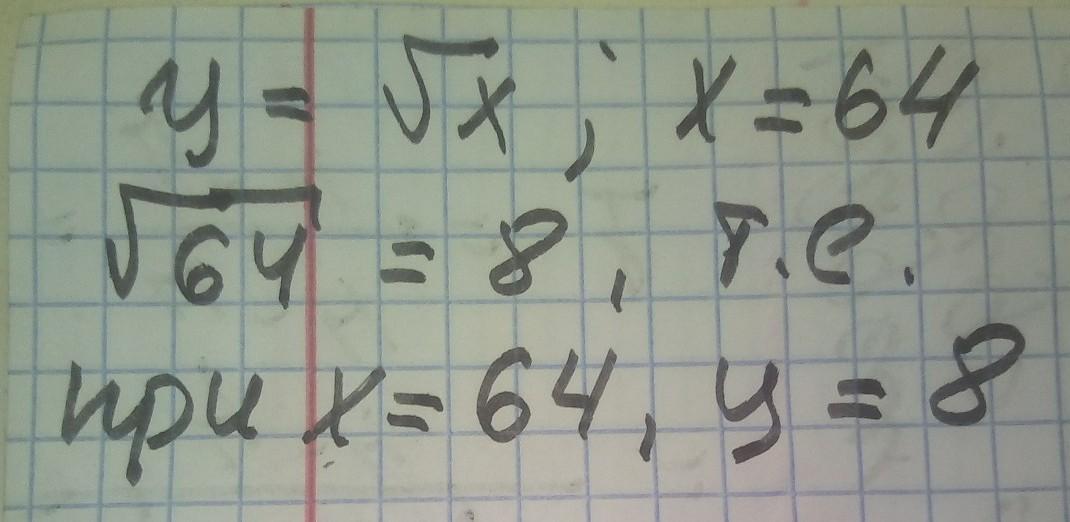 y = √x ; x = 64
√64 = 8, т.е.
при x = 64, y = 8